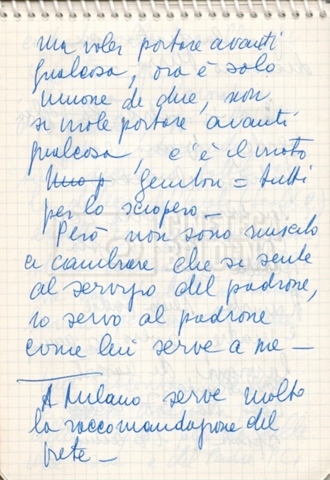 un voler portare avanti
qualcosa, ora è solo
unione di due, non
si vuole portare avanti
qualcosa, c'è il vuoto
= tutti
per lo sciopero —
Però non sono riuscito
a cambiare che si sente
al servizio del padrone,
io servo al padrone
come lui serve a me —
A Milano serve molto
la raccomandazione del
prete —